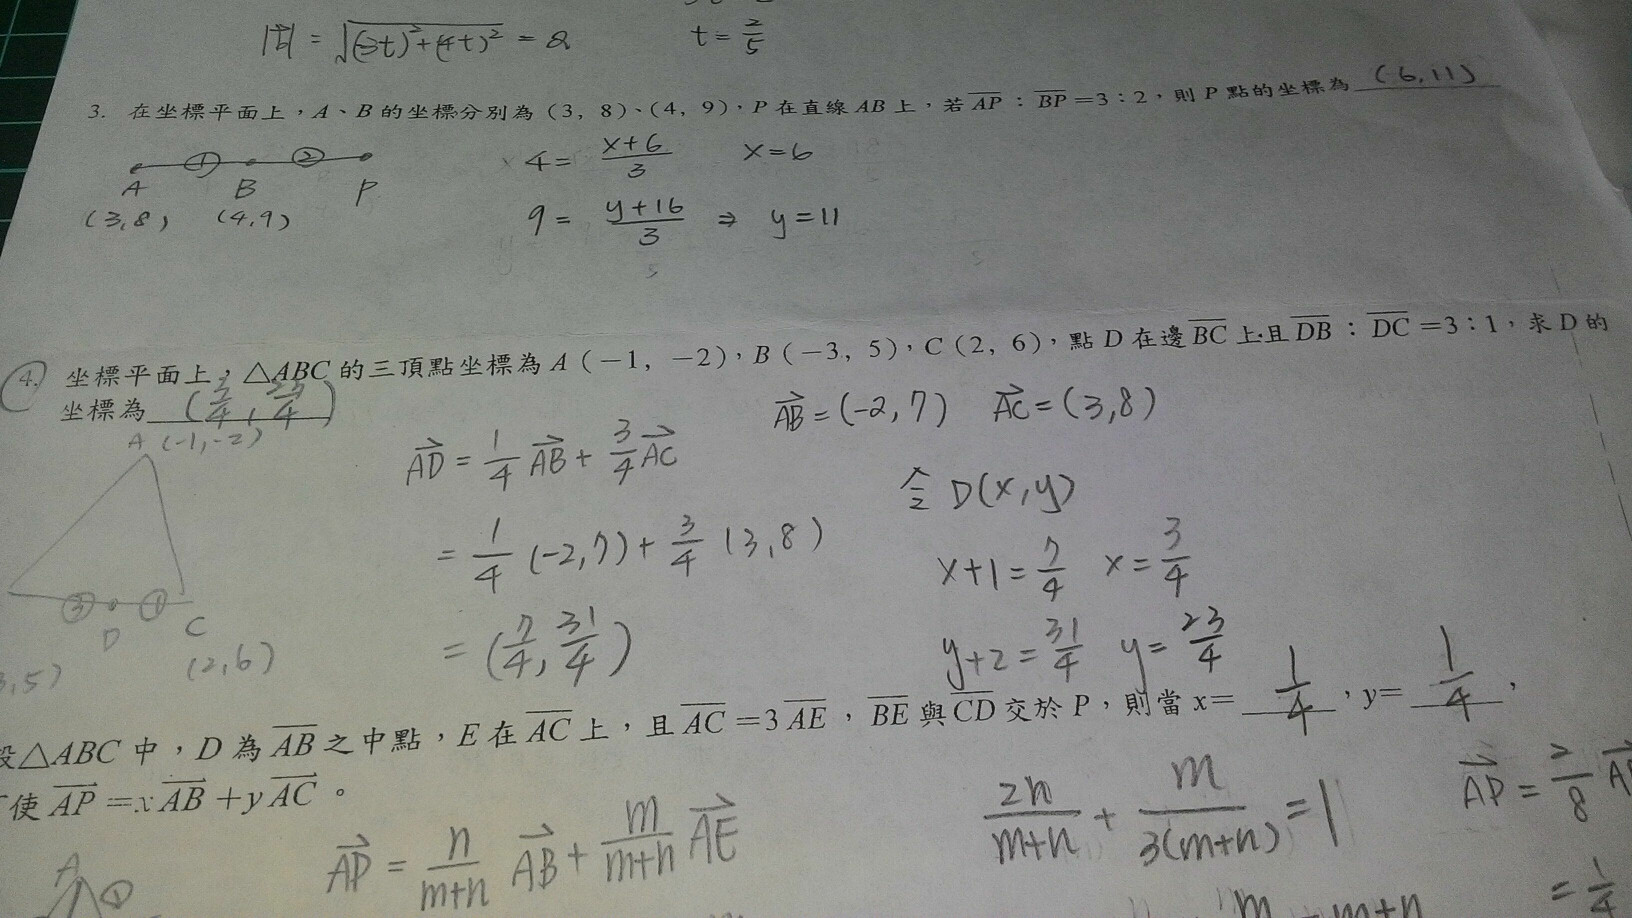 |t| = √((-3t)²+(4t)²) = 2
t = 2/5
3. 在坐標平面上，A、B 的坐標分別為 (3, 8)、(4, 9)，P 在直線 AB 上，若 AP：BP＝3：2，則 P 點的坐標為 (6,11)
① ②
A B P
(3,8) (4,9)
4 = (x+6)/3 x=6
9 = (y+16)/3 ⇒ y=11
4. 坐標平面上，△ABC 的三頂點坐標為 A (−1, −2)，B (−3, 5)，C (2, 6)，點 D 在邊 BC 上且 DB：DC＝3：1，求 D 的
坐標為 (3/4, 23/4)
A (-1,-2)
③ ①
D C
3,5) (2,6)
AB = (-2,7) AC = (3,8)
AD = 1/4 AB + 3/4 AC
= 1/4 (-2,7) + 3/4 (3,8)
= (7/4, 31/4)
令 D(x,y)
x+1 = 7/4 x = 3/4
y+2 = 31/4 y = 23/4
設△ABC 中，D 為 AB 之中點，E 在 AC 上，且 AC＝3 AE，BE 與 CD 交於 P，則當 x＝ 1/4，y＝ 1/4，
使 AP＝x AB＋y AC。
A ①
AP = n/(m+n) AB + m/(m+n) AE
2n/(m+n) + m/(3(m+n)) = 1
AP = 2/8
= 1/4
m m+n